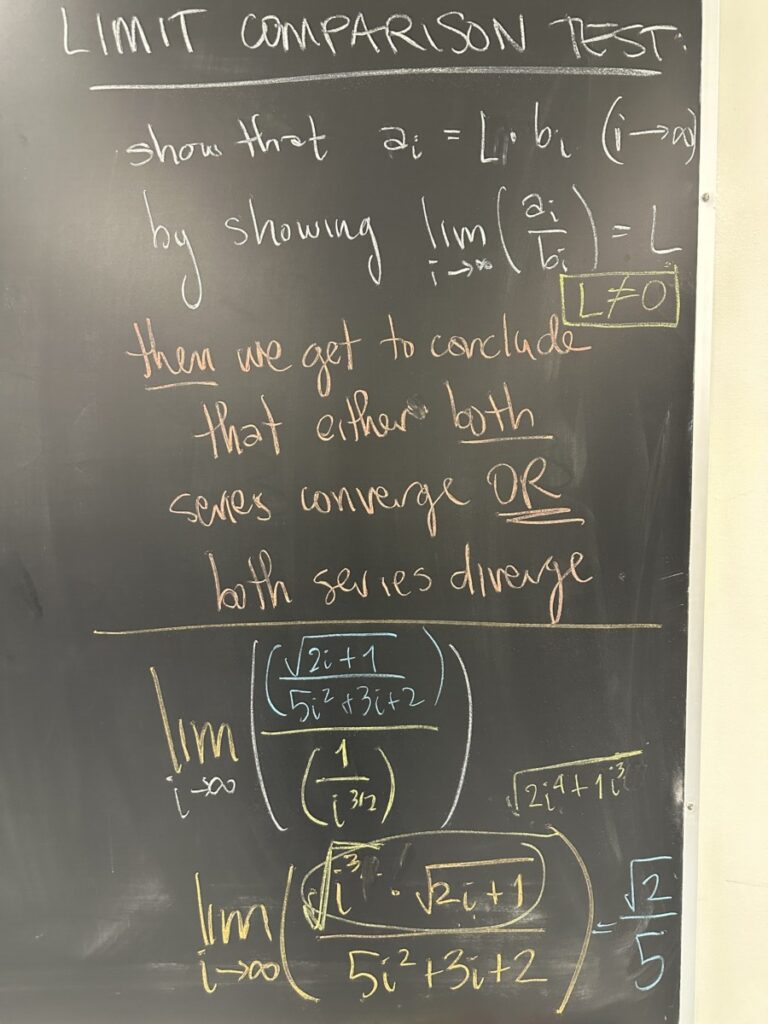 LIMIT COMPARISON TEST:
show that aᵢ = L · bᵢ (i→∞)
by showing lim i→∞ (aᵢ/bᵢ) = L
L≠0
then we get to conclude
that either both
series converge OR
both series diverge
lim i→∞ ((√(2i+1)/(5i²+3i+2))/(1/i^(3/2)))
√(2i⁴+1i³)
lim i→∞ (√(i³) · √(2i+1)/(5i²+3i+2)) = √2/5